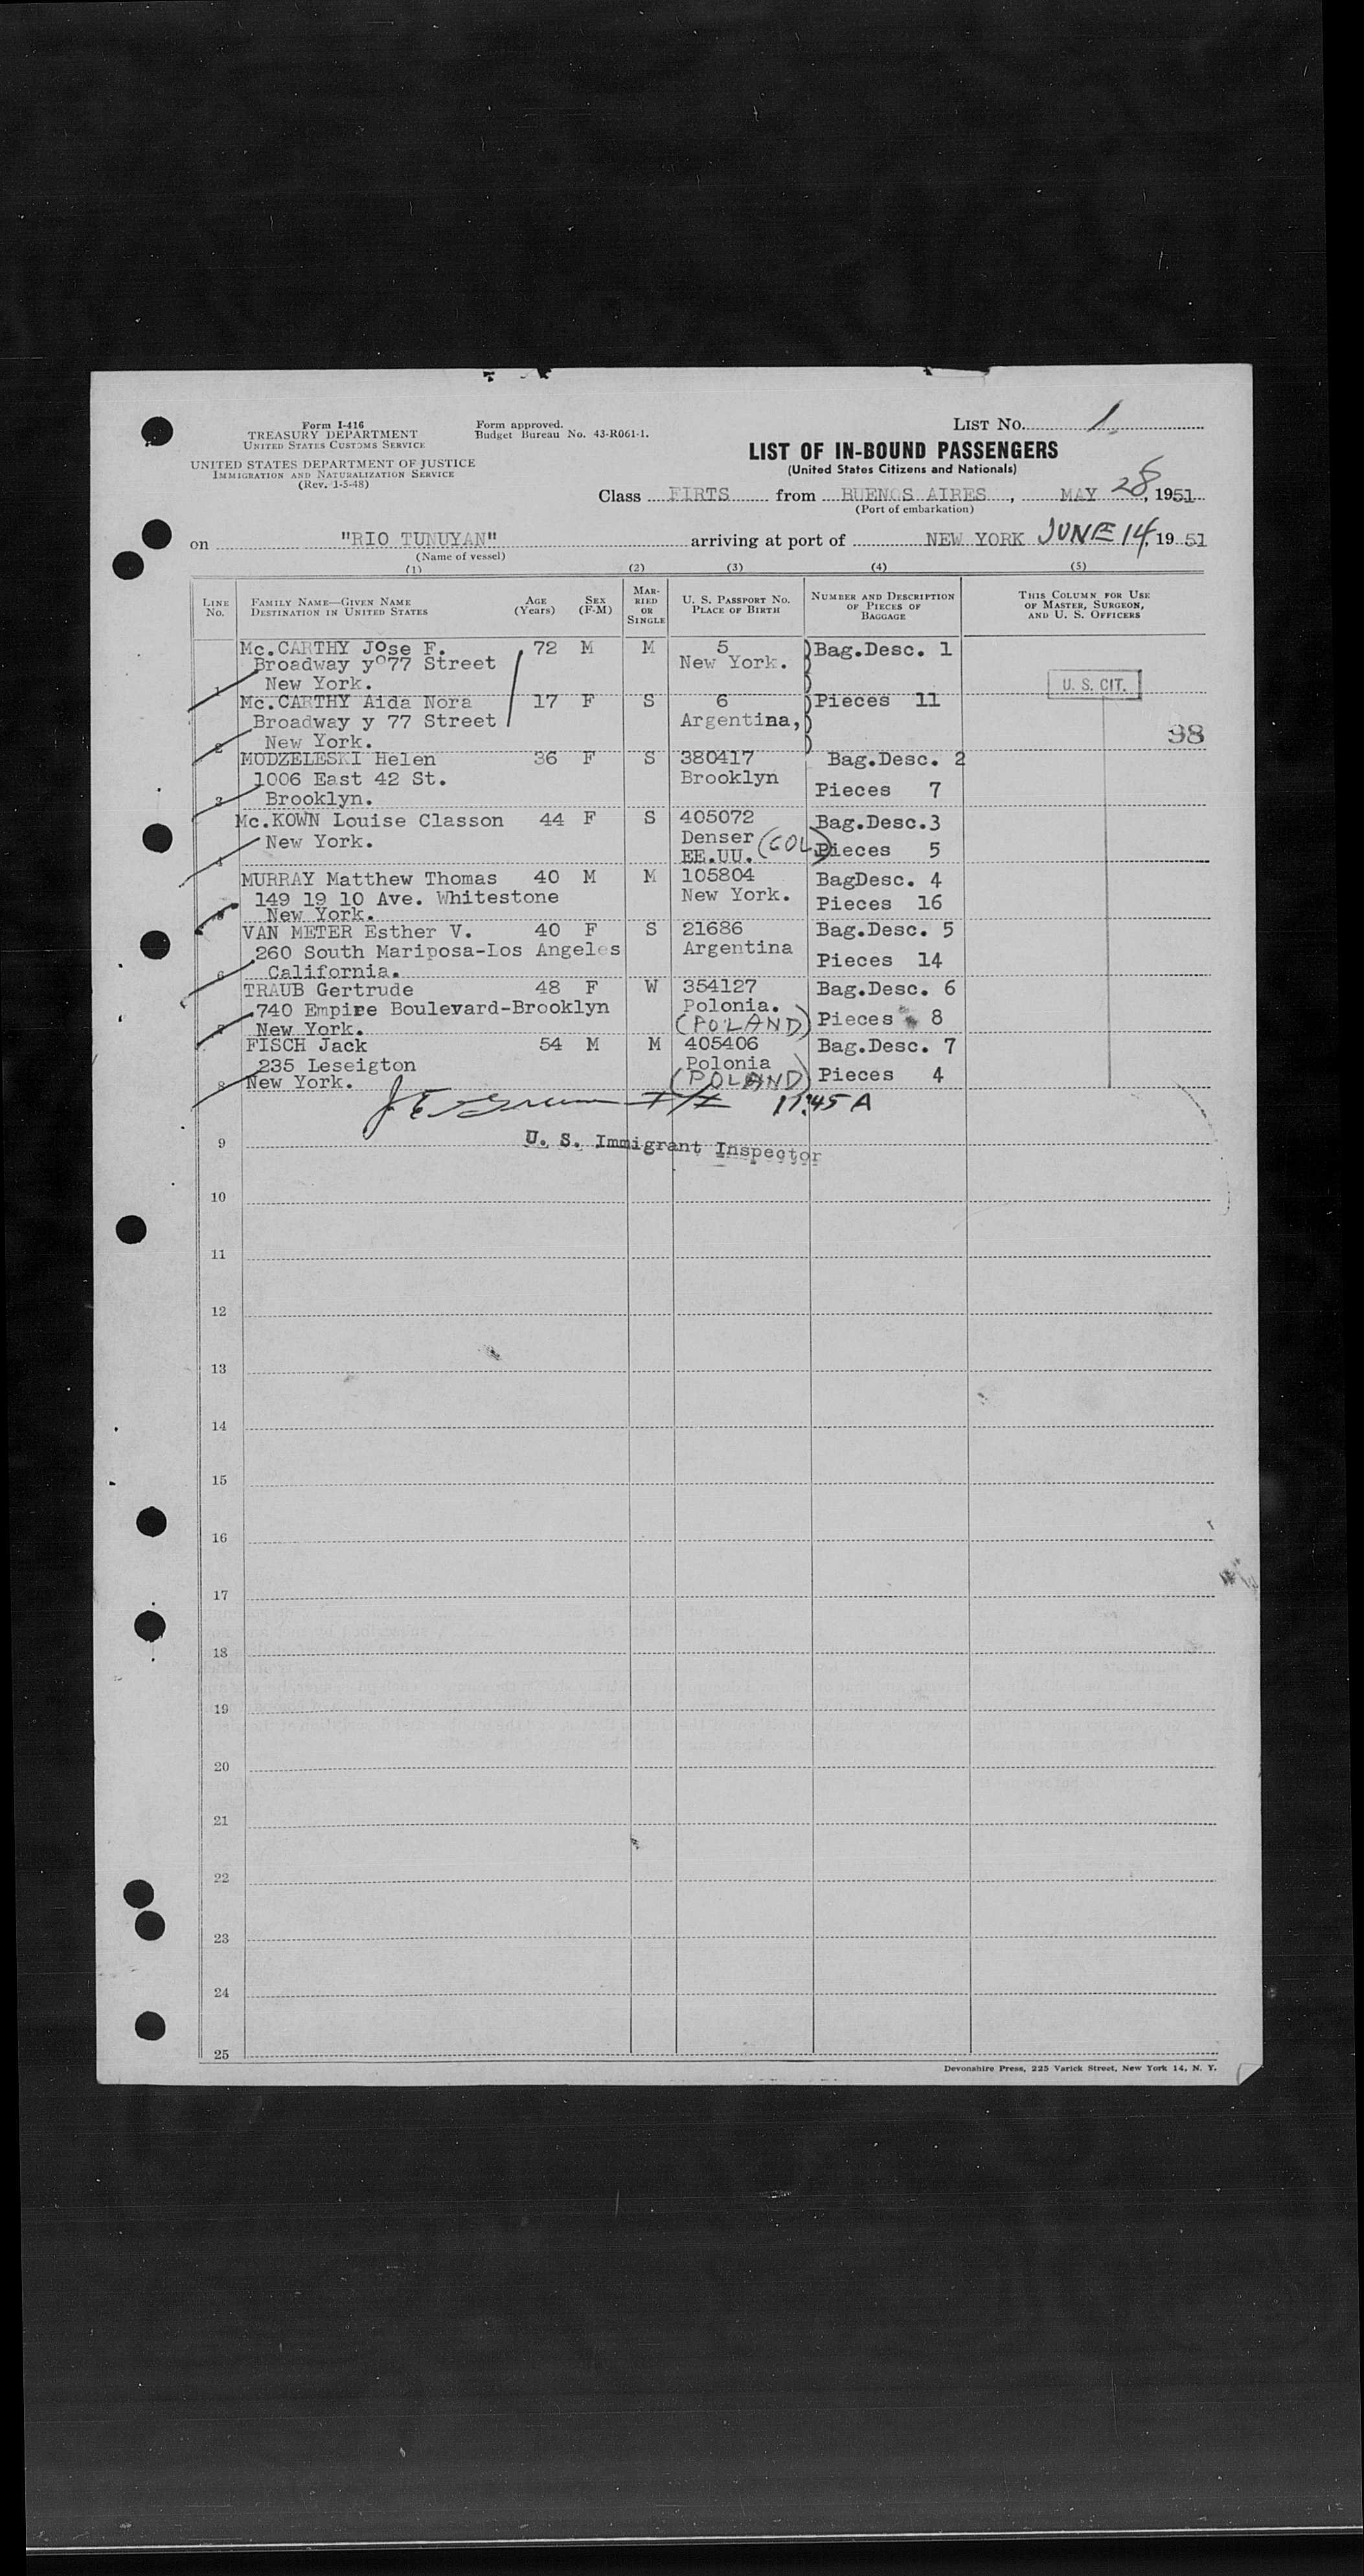 Form I-416
TREASURY DEPARTMENT
UNITED STATES CUSTOMS SERVICE
UNITED STATES DEPARTMENT OF JUSTICE
IMMIGRATION AND NATURALIZATION SERVICE
(Rev. 1-5-48)
Form approved.
Budget Bureau No. 43-R061-1.
LIST No. 1
LIST OF IN-BOUND PASSENGERS
(United States Citizens and Nationals)
Class FIRTS from BUENOS AIRES, MAY 28, 1951
(Port of embarkation)
on "RIO TUNUYAN" arriving at port of NEW YORK JUNE 14, 1951
(Name of vessel)
(1) (2) (3) (4) (5)
LINE No. FAMILY NAME—GIVEN NAME DESTINATION IN UNITED STATES AGE (Years) SEX (F-M) MARRIED OR SINGLE U. S. PASSPORT NO. PLACE OF BIRTH NUMBER AND DESCRIPTION OF PIECES OF BAGGAGE THIS COLUMN FOR USE OF MASTER, SURGEON, AND U. S. OFFICERS
Mc.CARTHY JOse F. 72 M M 5 Bag.Desc. 1
Broadway yº77 Street New York.
1 New York. U. S. CIT.
Mc.CARTHY Aida Nora 17 F S 6 Pieces 11
Broadway y 77 Street Argentina,
2 New York. 98
MODZELESKI Helen 36 F S 380417 Bag.Desc. 2
1006 East 42 St. Brooklyn Pieces 7
3 Brooklyn.
Mc.KOWN Louise Classon 44 F S 405072 Bag.Desc.3
New York. Denser (COL)
4 EE.UU. Pieces 5
MURRAY Matthew Thomas 40 M M 105804 BagDesc. 4
149 19 10 Ave. Whitestone New York. Pieces 16
5 New York.
VAN METER Esther V. 40 F S 21686 Bag.Desc. 5
260 South Mariposa-Los Angeles Argentina Pieces 14
6 California.
TRAUB Gertrude 48 F W 354127 Bag.Desc. 6
740 Empire Boulevard-Brooklyn Polonia. Pieces 8
7 New York. (POLAND)
FISCH Jack 54 M M 405406 Bag.Desc. 7
235 Leseigton Polonia Pieces 4
8 New York. (POLAND)
11:45 A
U. S. Immigrant Inspector
9
10
11
12
13
14
15
16
17
18
19
20
21
22
23
24
25
Devonshire Press, 225 Varick Street, New York 14, N. Y.